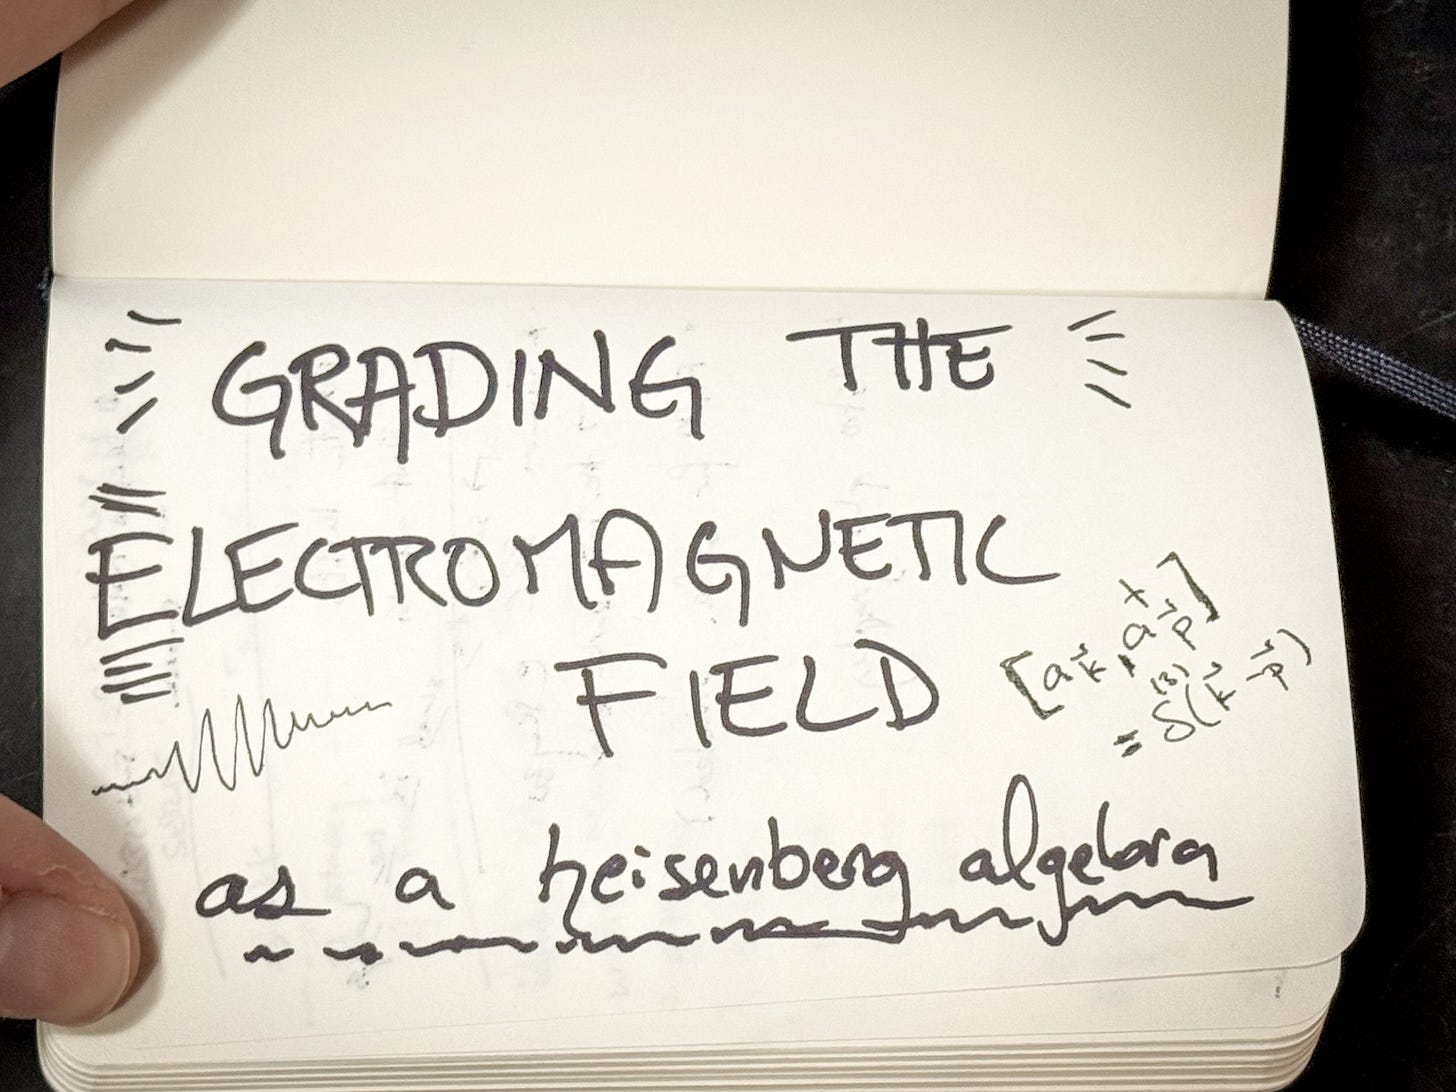 GRADING THE
ELECTROMAGNETIC
FIELD
[a_k⃗, a†_p⃗]
= δ⁽³⁾(k⃗-p⃗)
as a heisenberg algebra